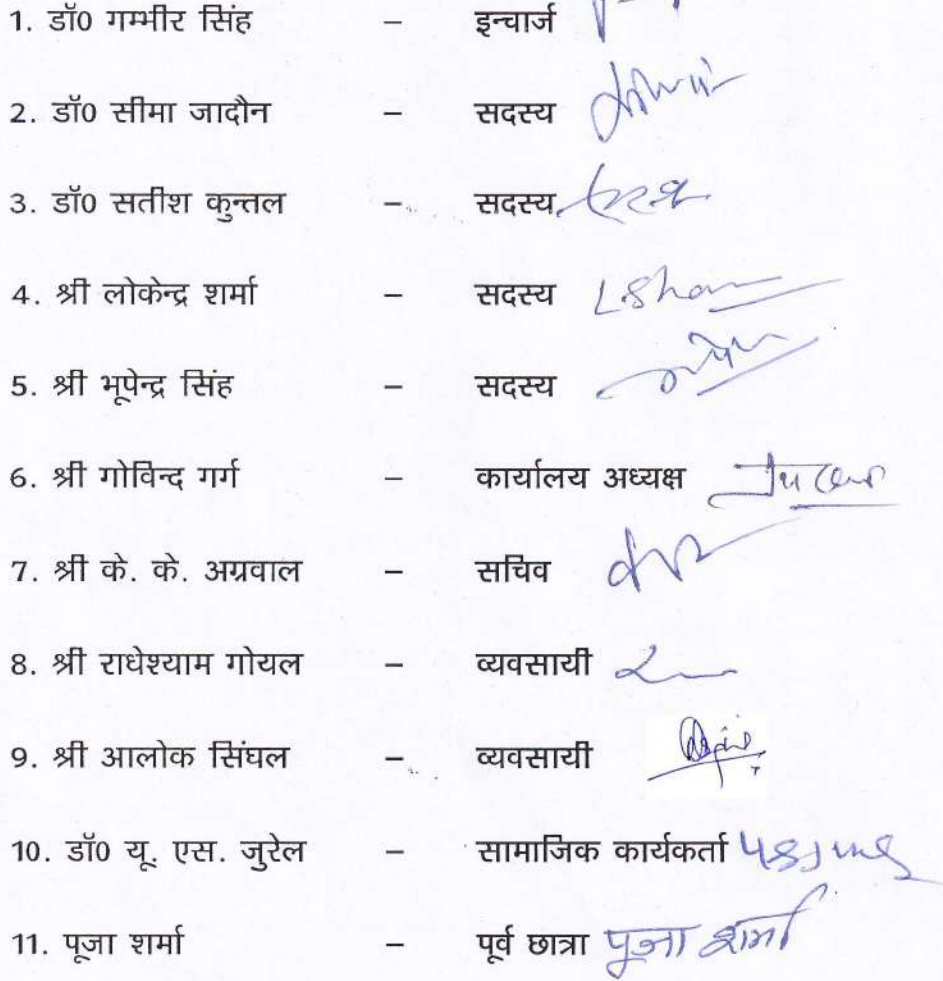 1. डॉ0 गम्भीर सिंह – इन्चार्ज
2. डॉ0 सीमा जादौन – सदस्य
3. डॉ0 सतीश कुन्तल – सदस्य
4. श्री लोकेन्द्र शर्मा – सदस्य
5. श्री भूपेन्द्र सिंह – सदस्य
6. श्री गोविन्द गर्ग – कार्यालय अध्यक्ष
7. श्री के. के. अग्रवाल – सचिव
8. श्री राधेश्याम गोयल – व्यवसायी
9. श्री आलोक सिंघल – व्यवसायी
10. डॉ0 यू. एस. जुरेल – सामाजिक कार्यकर्ता
11. पूजा शर्मा – पूर्व छात्रा पूजा शर्मा